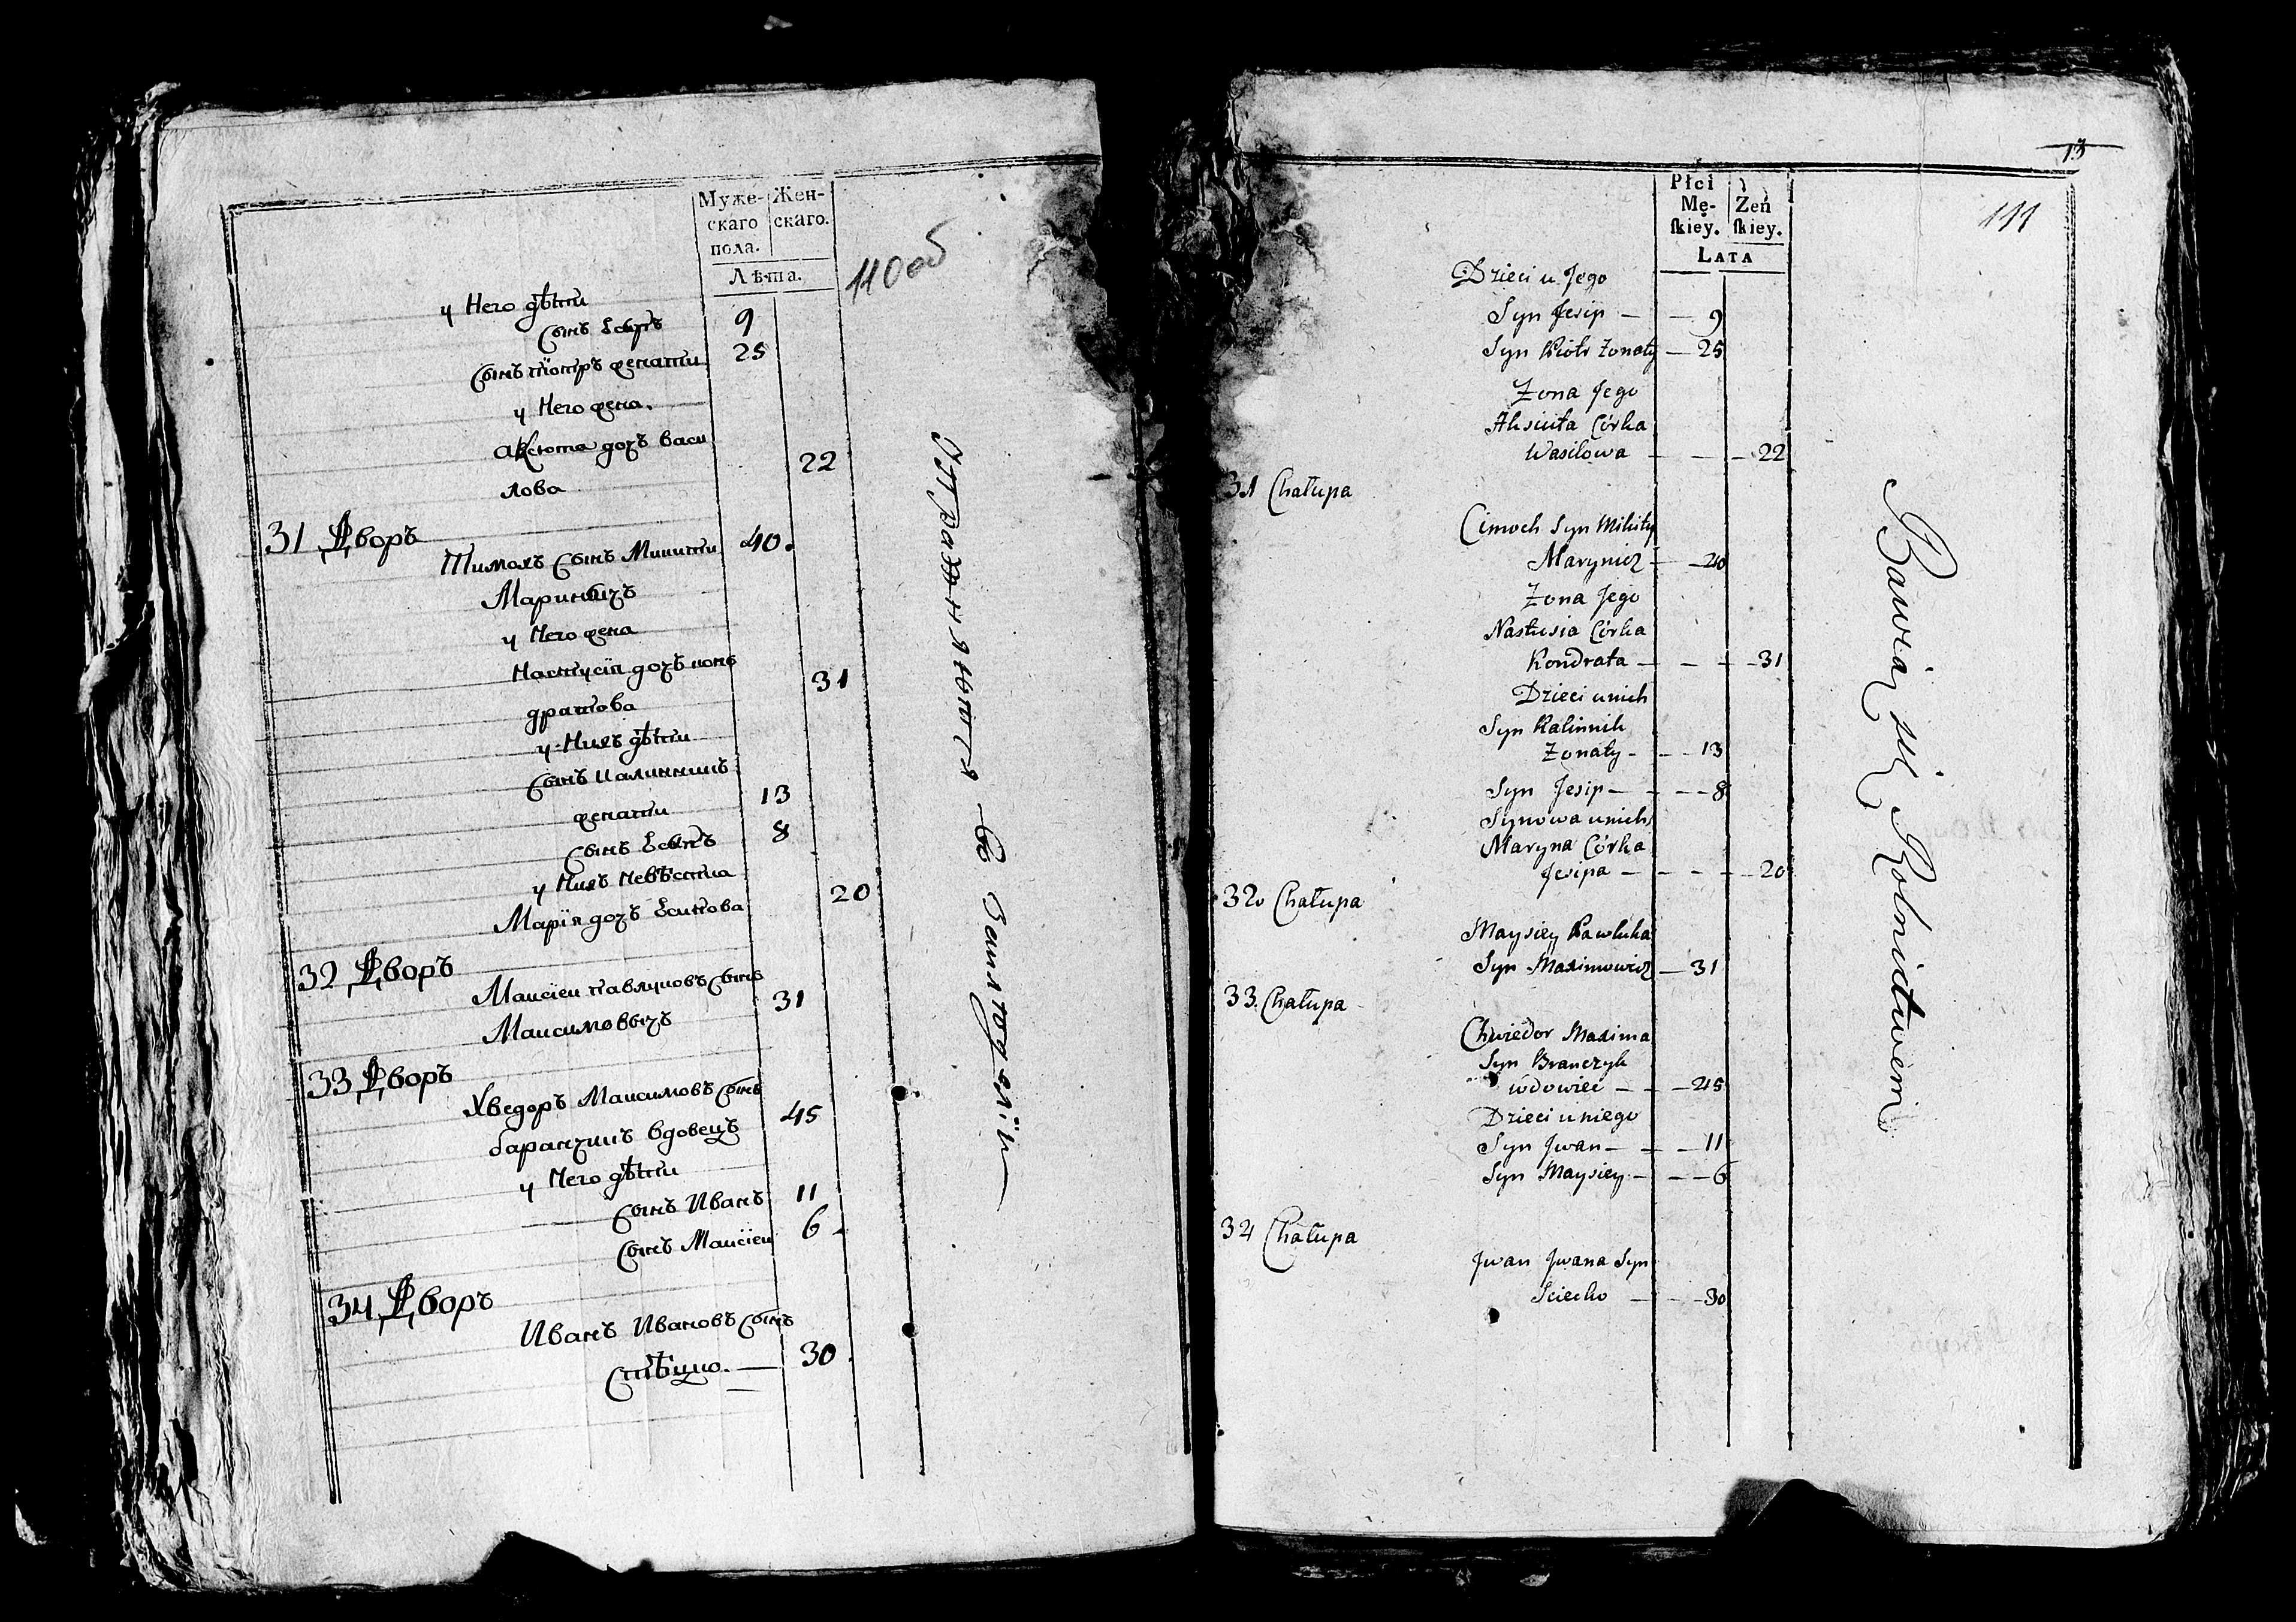 Муже-
скаго
пола.
Жен-
скаго.
Лѣта.
110 об
у Него дѣти
Сынъ Есипъ 9
Сынъ Піотръ женати 25
у Него жена.
Аксюта дочъ Васи
лова 22
31 Дворъ
Тимохъ Сынъ Микити 40.
Маринычъ
у Него жена
Настусія дочъ кон
дратова 31
у Нихъ дѣти
Сынъ Калинникъ
женати 13
Сынъ Есипъ 8
у Нихъ Невѣстка
Марія дочъ Есипова 20
32 Дворъ
Маисіеи Павлуковъ Сынъ
Максимовычъ 31
33 Дворъ
Хведоръ Максимовъ Сынъ
баранчикъ вдовецъ 45
у Него дѣти
Сынъ Иванъ 11
Сынъ Маисіеи 6
34 Дворъ
Иванъ Ивановъ Сынъ
Стѣцко. — 30
Упражняются въ Земледеліи
13
111
Płci
Mę-
ſkiey.
Y
Zeń
ſkiey.
LATA
Dzieci u Jego
Syn Jesip — 9
Syn Piotr Zonaty — 25
Zona Jego
Aksiuta Córka
Wasilowa — 22
31 Chałupa
Cimoch Syn Mikity
Marynicz — 40
Zona Jego
Nastusia Córka
Kondrata — 31
Dzieci u nich
Syn Kalinnik
Zonaty — 13
Syn Jesip — 8
Synowa u nich
Maryna Córka
Jesipa — 20
32 Chałupa
Maysiey Pawluka
Syn Maximowicz — 31
33 Chałupa
Chwiedor Maxima
Syn Branczyk
wdowiec — 45
Dzieci u niego
Syn Jwan — 11
Syn Maysiey — 6
34 Chałupa
Jwan Jwana Syn
Sciecko — 30
Bawią się Rolnictwem